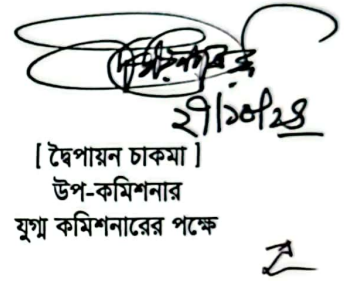 ২৭/১০/২৪
[ দ্বৈপায়ন চাকমা ]
উপ-কমিশনার
যুগ্ম কমিশনারের পক্ষে